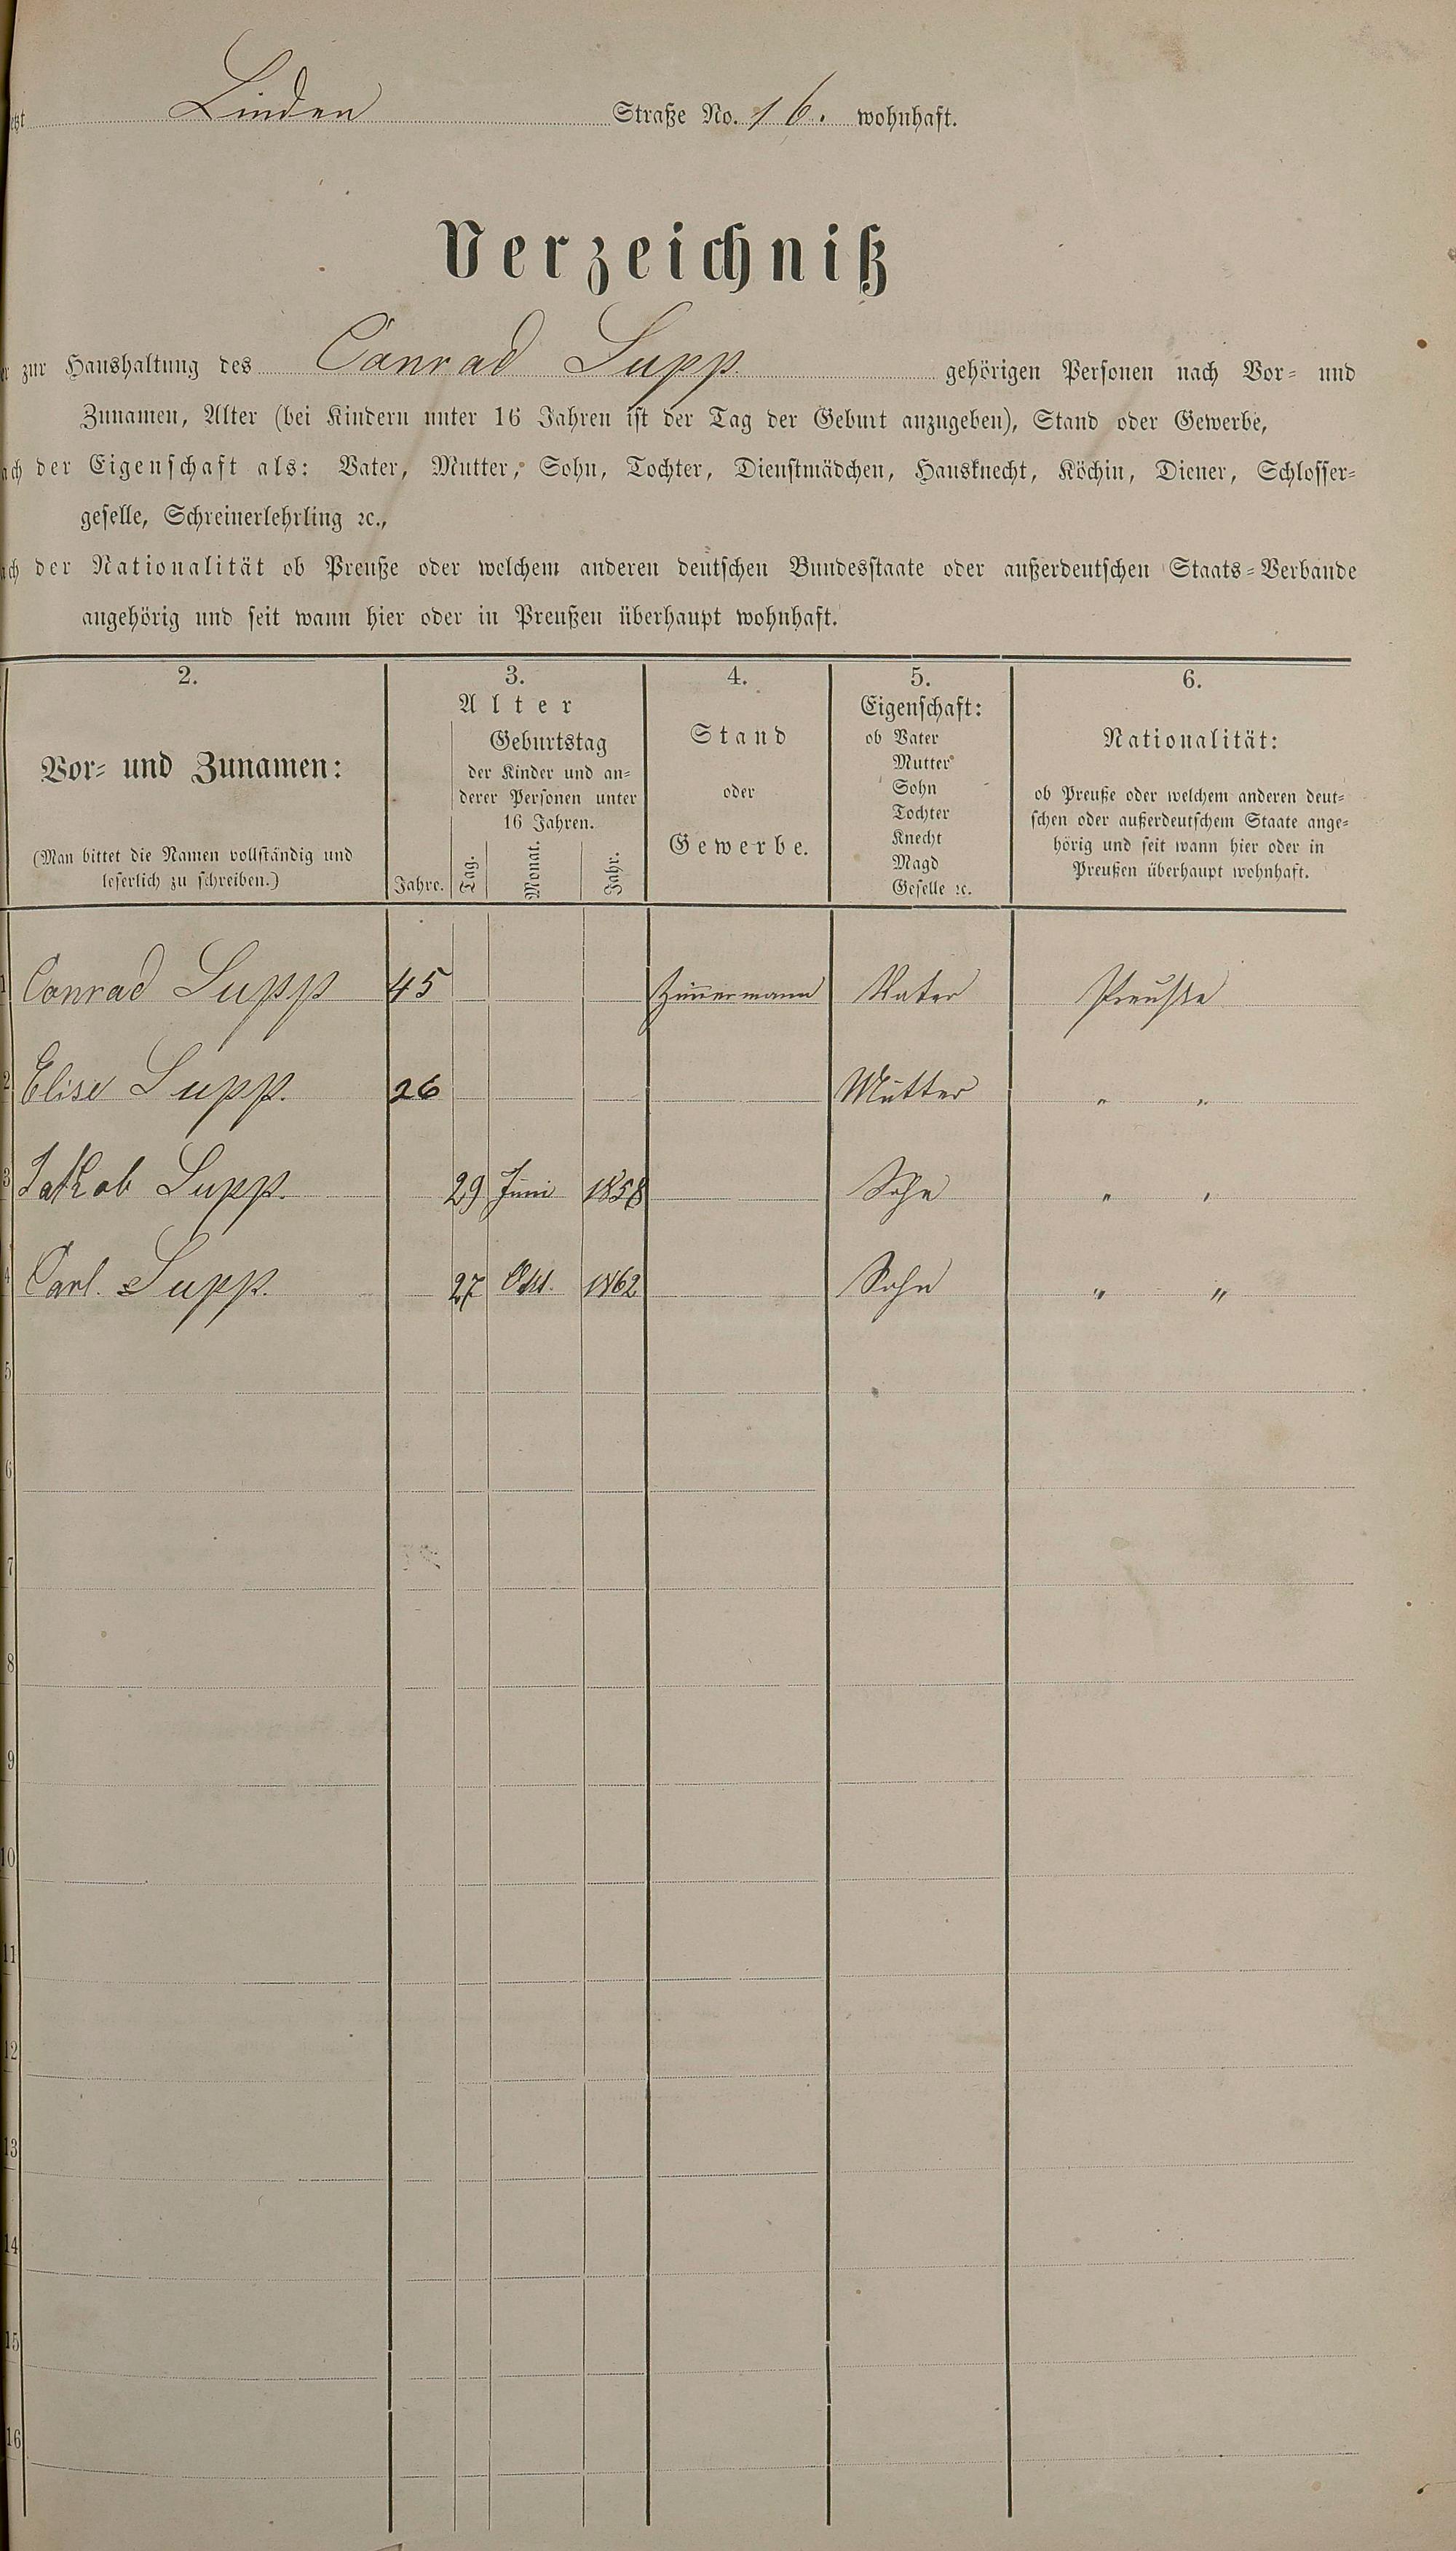 Linden Straße No. 16. wohnhaft.
Verzeichniß
zur Haushaltung des Conrad Supp gehörigen Personen nach Vor- und
Zunamen, Alter (bei Kindern unter 16 Jahren ist der Tag der Geburt anzugeben), Stand oder Gewerbe,
der Eigenschaft als: Vater, Mutter, Sohn, Tochter, Dienstmädchen, Hausknecht, Köchin, Diener, Schlosser-
geselle, Schreinerlehrling ꝛc.,
der Nationalität ob Preuße oder welchem anderen deutschen Bundesstaate oder außerdeutschen Staats-Verbande
angehörig und seit wann hier oder in Preußen überhaupt wohnhaft.
2.
Vor- und Zunamen:
(Man bittet die Namen vollständig und
leserlich zu schreiben.)
3.
Alter
Geburtstag
der Kinder und an-
derer Personen unter
16 Jahren.
Jahre. Tag. Monat. Jahr.
4.
Stand
oder
Gewerbe.
5.
Eigenschaft:
ob Vater
Mutter
Sohn
Tochter
Knecht
Magd
Geselle ꝛc.
6.
Nationalität:
ob Preuße oder welchem anderen deut-
schen oder außerdeutschem Staate ange-
hörig und seit wann hier oder in
Preußen überhaupt wohnhaft.
1 Conrad Supp 45 Zimermann Vater Preuße
2 Elise Supp. 26 Mutter " "
3 Jakob Supp. 29 Juni 1858 Sohn " "
4 Carl. Supp. 27 Okt. 1862 Sohn " "
5
6
7
8
9
10
11
12
13
14
15
16